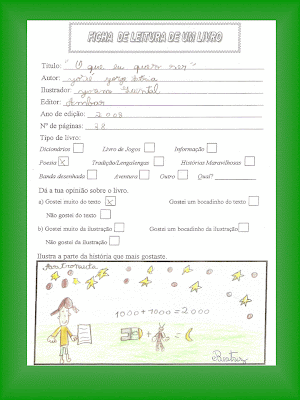 FICHA DE LEITURA DE UM LIVRO
Título: "O que eu quero ser"
Autor: José Jorge Letria
Ilustrador:
Editor: Ambar
Ano de edição: 2003
Nº de páginas: 38
Tipo de livro:
Dicionários Livro de Jogos Informação
Poesia X Tradição/Lengalengas Histórias Maravilhosas
Banda desenhada Aventura Outro Qual?
Dá a tua opinião sobre o livro.
a) Gostei muito do texto X Gostei um bocadinho do texto
Não gostei do texto
b) Gostei muito da ilustração Gostei um bocadinho da ilustração
Não gostei da ilustração
Ilustra a parte da história que mais gostaste.
Astronauta
1000+1000=2000
+ =
Beatriz